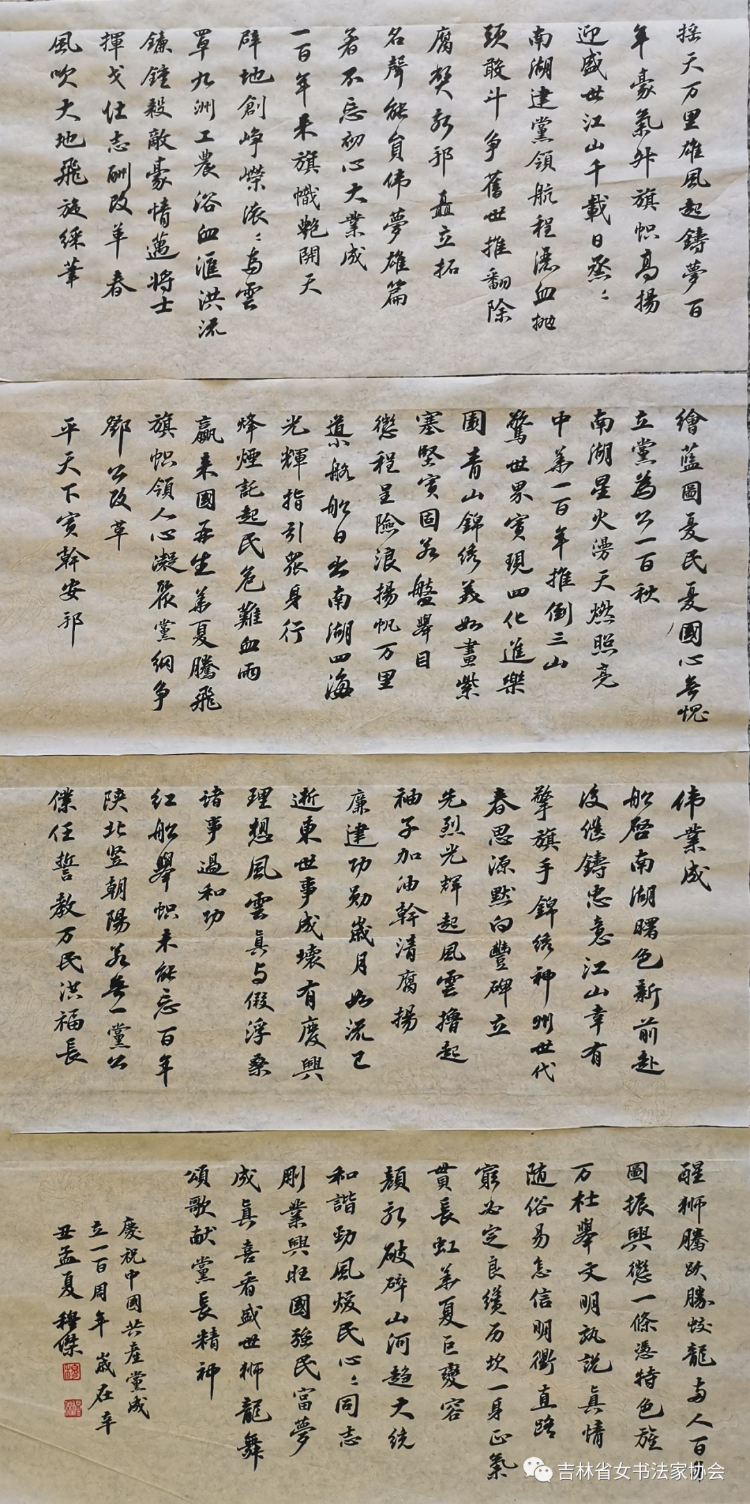 摇天万里雄风起鑄夢百
年豪氣升旗帜高揚
迎盛世江山千載日烝〻
南湖建黨領航程灑血抛
頭敢斗争舊世推翻除
腐獘新邦矗立拓
名聲能負偉夢雄篇
著不忘初心大業成
一百年来旗幟艳開天
辟地創峥嶸滚〻烏雲
罩九洲工農浴血滙洪流
鐮錘殺敵豪情蓋将士
揮戈壮志酬改革春
風吹大地飛旋綵筆
繪藍圖憂民憂國心無愧
立黨為公一百秋
南湖星火漫天燃照亮
中華一百年推倒三山
驚世界實現四化進樂
園青山錦绣美如畫紫
塞堅實固若盤舉目
愁程呈險浪揚帆万里
樂船日出南湖四海
光輝指引眾身行
烽煙託起民危難血雨
贏来國再生華夏騰飛
旗帜領人心凝聚黨綱争
鄧公改革
平天下實幹安邦
偉業成
船啓南湖曙色新前赴
後继鑄忠意江山幸有
擎旗手錦绣神州世代
春思源默向豐碑立
先烈光輝起風雲擼起
袖子加油幹清腐揚
廉建功勋歲月如流已
逝東世事成壊有慶興
理想風雲真与假浮桑
诸事過和功
红船舉帜未能忘百年
陝北竖朝陽若無一黨公
僕任誓教万民洪福長
醒狮騰跃勝蛟龍与人百年
圖振興愁一條憑特色旌
万杜舉文明孰説真情
随俗易怎信明衢直路
窮必定良績历坎一身正氣
貫長虹華夏巨變容
顔新破碎山河趋大统
和諧勁風暖民心〻同志
剛業興旺國強民富夢
成真喜看盛世狮龍舞
頌歌献黨長精神
慶祝中國共產黨成
立一百周年歲在辛
丑孟夏穆傑
吉林省女书法家协会